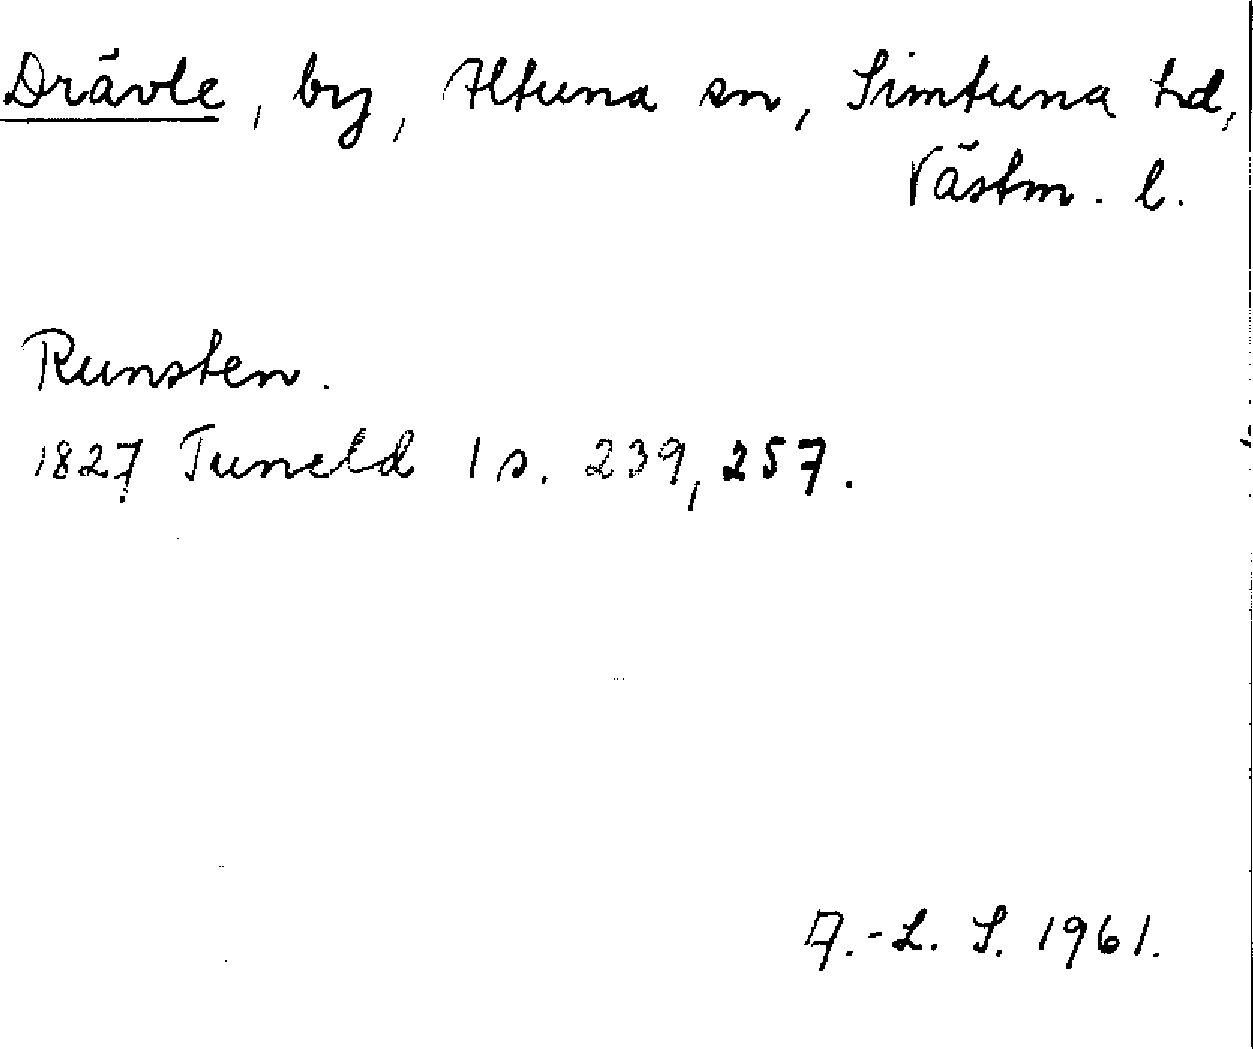 Drävle, by, Altuna sn, Simtuna hd,
Västm. l.
Runsten.
1827 Tuneld 1 s. 239, 257.
A.-L. S. 1961.